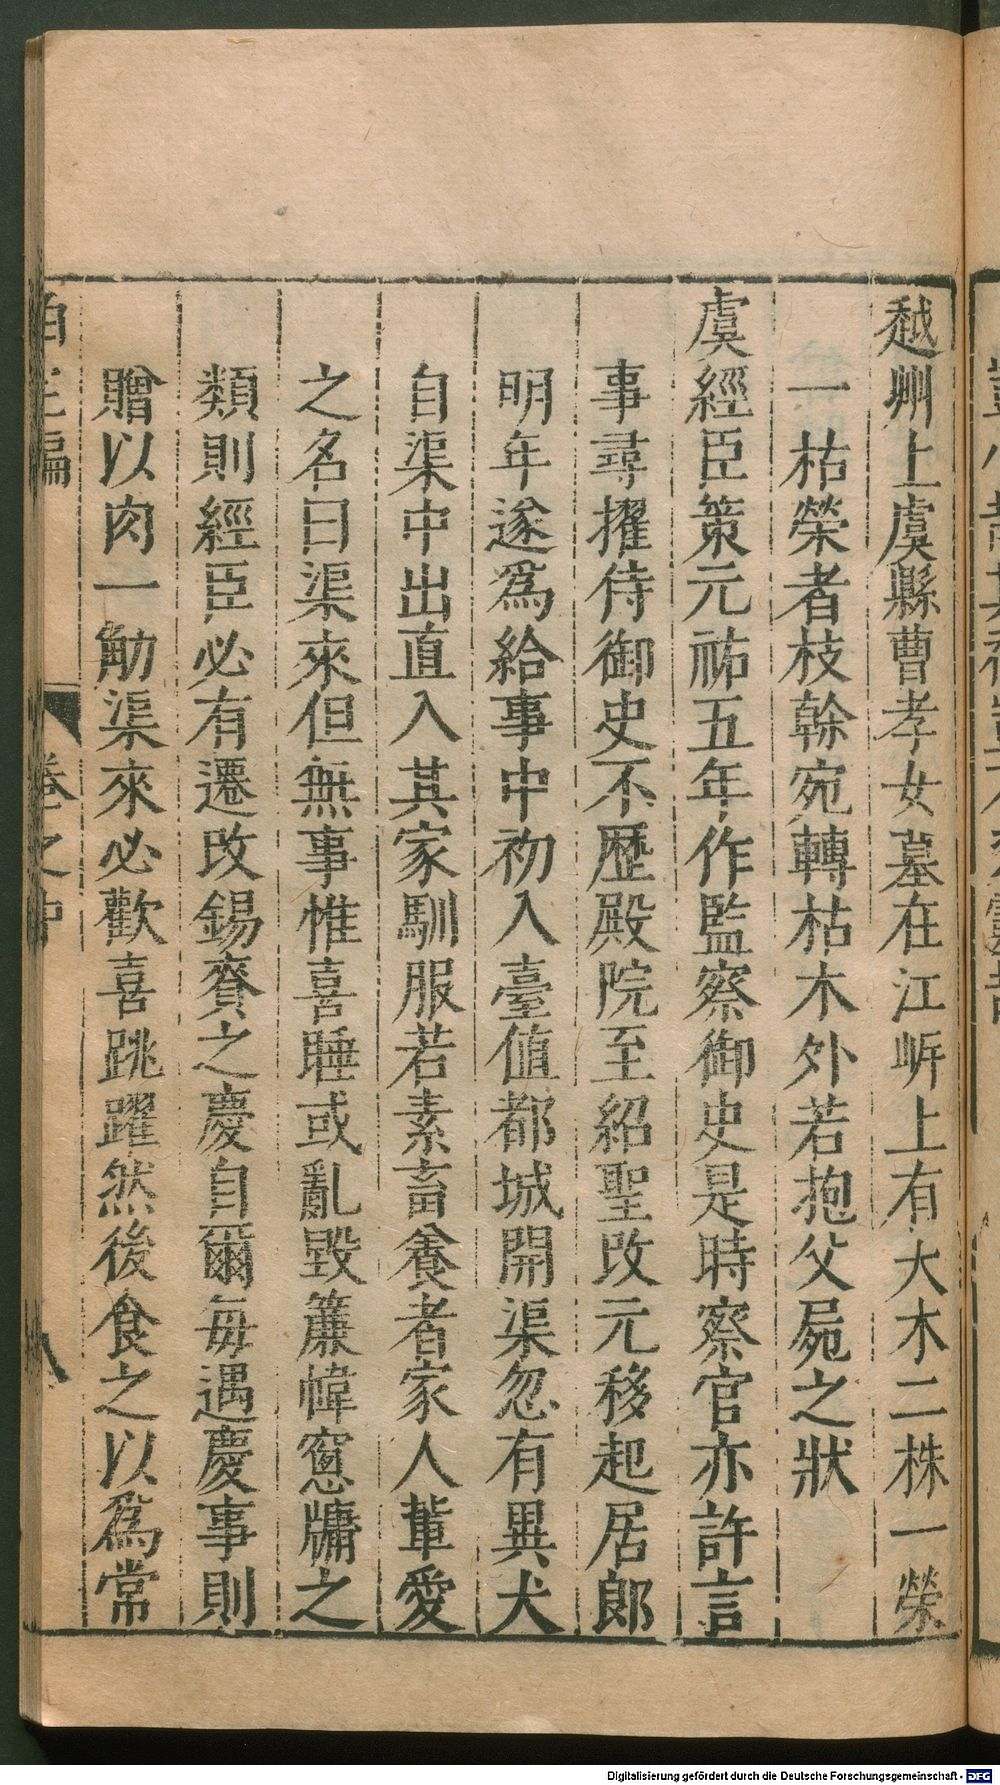 越州上虞縣曹孝女墓在江岍上有大木二株一榮
一枯榮者枝幹宛轉枯木外若抱父屍之狀
虞經臣策元祐五年作監察御史是時察官亦許言
事尋擢侍御史不歷殿院至紹聖改元移起居郎
明年遂爲給事中初入臺値都城開渠忽有異犬
自渠中出直入其家馴服若素畜養者家人輩愛
之名曰渠來但無事惟喜睡或亂毀簾幃窻牗之
類則經臣必有遷改錫賚之慶自爾每遇慶事則
贈以肉一觔渠來必歡喜跳躍然後食之以爲常
Digitalisierung gefördert durch die Deutsche Forschungsgemeinschaft - DFG